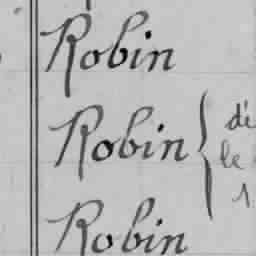 Robin
Robin { dé
le
Robin